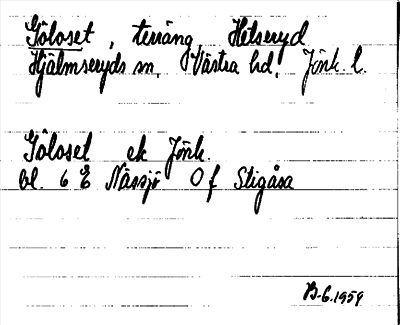 Göloset, terräng Helseryd
Hjälmseryds sn, Västra hd, Jönk. l.
Göloset ek Jönk.
bl. 6 E Nässjö 0 f Stigåsa
B-6.1959